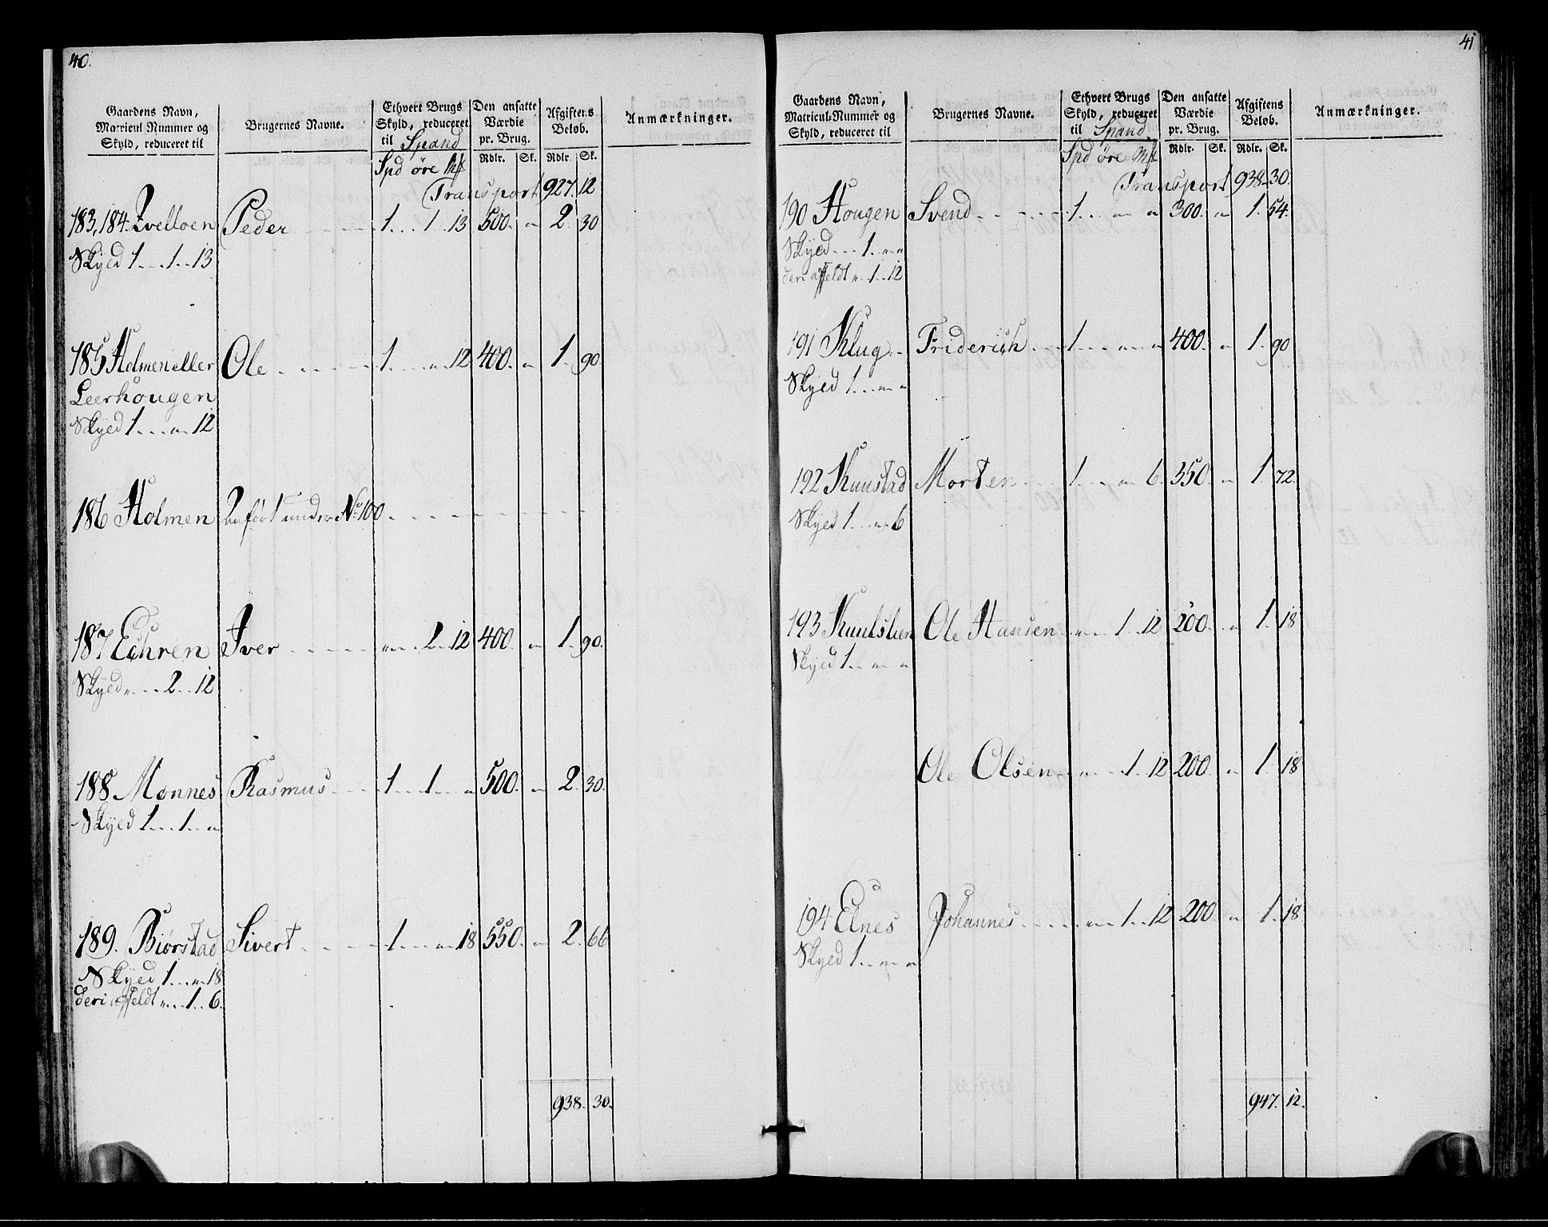 40.
Gaardens Navn, Matricul-Nummer og Skyld, reduceret til | Brugernes Navne. | Ethvert Brugs Skyld, reduceret til Spand | Den ansatte Værdie pr. Brug. | Afgiftens Beløb. | Anmærkninger.
Spd øre Mk | Rdlr. Sk. | Rdlr. Sk.
Transport 927. 12
183, 184. Qvelloen Peder 1 1 13 500 " 2 30
Skyld 1 1 13
185 Holmen eller Ole 1 " 12 400 " 1 90
Leerhougen
Skyld 1 " 12
186 Holmen Anført under No. 100
187 Echren Iver " 2 12 400 " 1 90
Skyld " 2 12
188 Monnes Rasmus 1 1 " 500 " 2 30
Skyld 1 1 "
189. Biørstad Sivert 1 " 18 550 " 2 66
Skyld 1 " 18
deri affeldt " 1 6
938. 30.
41
Gaardens Navn, Matricul-Nummer og Skyld, reduceret til | Brugernes Navne. | Ethvert Brugs Skyld, reduceret til Spand | Den ansatte Værdie pr. Brug. | Afgiftens Beløb. | Anmærkninger.
Spd øre Mk | Rdlr. Sk. | Rdlr. Sk.
Transport 938. 30.
190 Hougen Svend 1 " " 300 " 1 54
Skyld 1 " "
deri affeldt " 1 12
191 Klug Friderich 1 " " 400 " 1 90
Skyld 1 " "
192 Kunstad Morten 1 " 6 350 " 1 72
Skyld 1 " 6
193 Ole Hansen " 1 12 200 " 1 18
Skyld 1 " "
Ole Olsen " 1 12 200 " 1 18
194 Elnes Johannes " 1 12 200 " 1 18
Skyld 1 " "
947. 12.